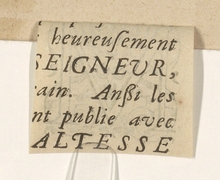 heureuſement
SEIGNEUR,
ain. Anßi les
nt publie avec
ALTESSE